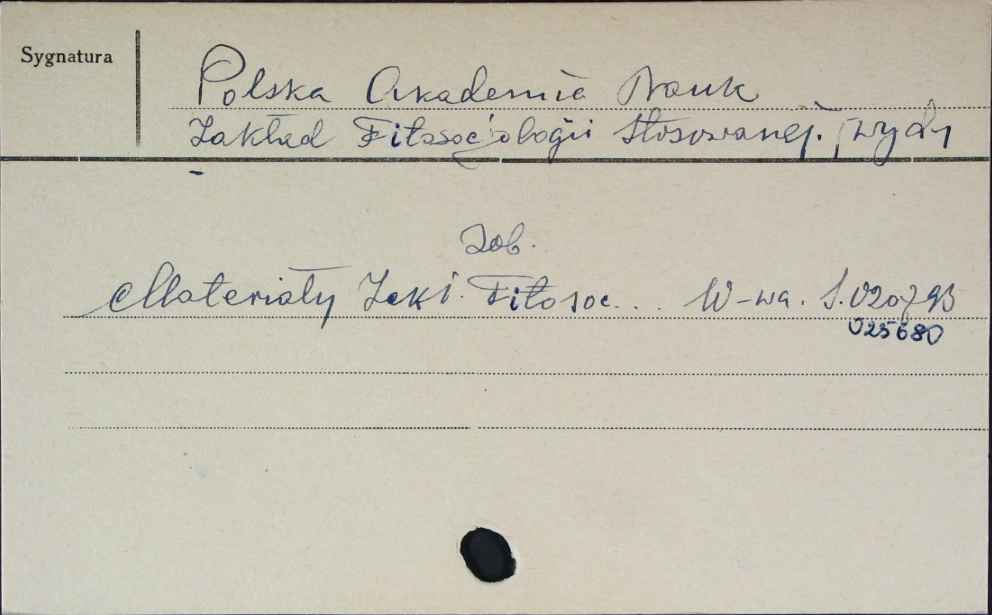 Sygnatura
Polska Akademia Nauk
Zakład Fitosocjologii Stosowanej. [wyd]
Zob.
Materiały Zakł. Fitosoc... W-wa. S. 020793
025680